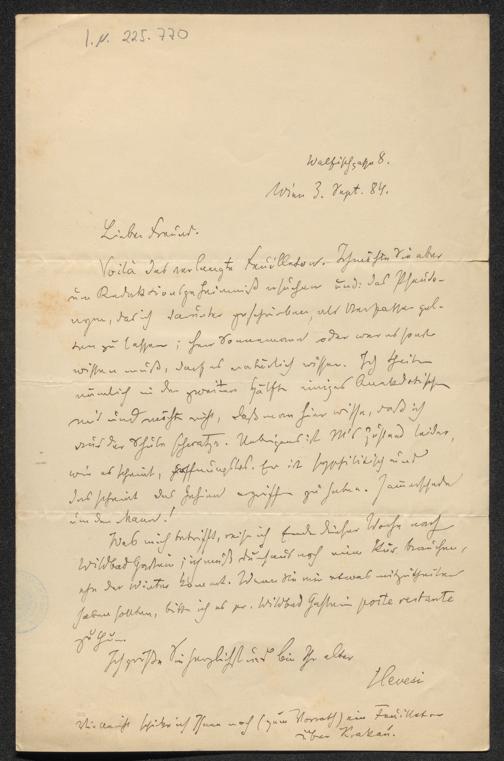 I.N. 225.770
Walfischgasse 8.
Wien 3. Sept. 84.
Lieber Freund.
Voilà das verlangte Feuilleton. Ich möchte Sie aber
um Redaktionsgeheimniß ersuchen und: das Pseudo-
nym, das ich darunter geschrieben, als Verfasser gel-
ten zu lassen; Herr Sonnemann oder wer es sonst
wissen muß, darf es natürlich wissen. Ich theile
nämlich in der zweiten Hälfte einiges Anekdotische
mit und möchte nicht, daß man hier wisse, daß ich
aus der Schule schwatze. Uebrigens ist M's Zustand leider,
wie es scheint, hoffnungslos. Er ist syphilitisch und
das scheint das Gehirn ergriffen zu haben. Jammerschade
um den Mann!
Was mich betrifft, reise ich Ende dieser Woche nach
Wildbad Gastein; ich muß durchaus noch eine Kur brauchen,
ehe der Winter kommt. Wenn Sie mir etwas mitzutheilen
haben sollten, bitte ich es pr. Wildbad Gastein poste restante
zu thun.
Ich grüße Sie herzlichst und bin Ihr alter
Hevesi
Vielleicht schicke ich Ihnen noch (zum Vorrath) ein Feuilleton
über Krakau.